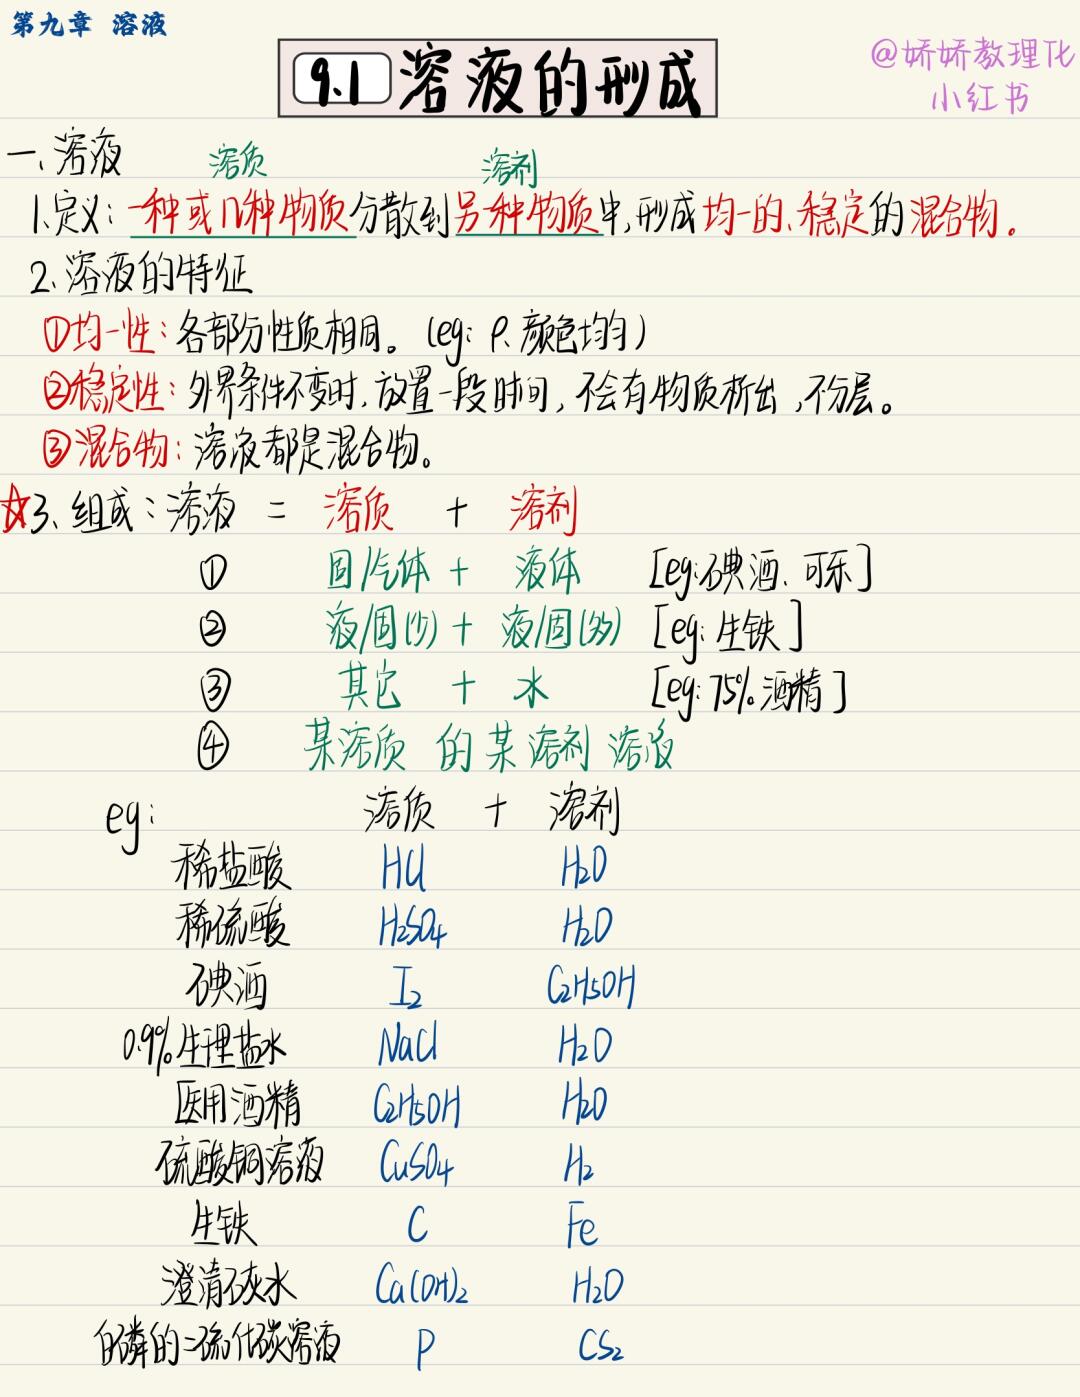 第九章 溶液
9.1 溶液的形成
@娇娇教理化
小红书
一、溶液
溶质 溶剂
1.定义：一种或几种物质分散到另一种物质中,形成均一的、稳定的混合物。
2.溶液的特征
①均一性：各部分性质相同。(eg: ρ、颜色均匀)
②稳定性：外界条件不变时,放置一段时间,不会有物质析出,不分层。
③混合物：溶液都是混合物。
☆3、组成：溶液 = 溶质 + 溶剂
① 固/气体 + 液体 [eg:碘酒、可乐]
② 液/固(少) + 液/固(多) [eg: 生铁]
③ 其它 + 水 [eg: 75%酒精]
④ 某溶质 的 某溶剂 溶液
eg: 溶质 + 溶剂
稀盐酸 HCl H₂O
稀硫酸 H₂SO₄ H₂O
碘酒 I₂ C₂H₅OH
0.9%生理盐水 NaCl H₂O
医用酒精 C₂H₅OH H₂O
硫酸铜溶液 CuSO₄ H₂
生铁 C Fe
澄清石灰水 Ca(OH)₂ H₂O
白磷的二硫化碳溶液 P CS₂